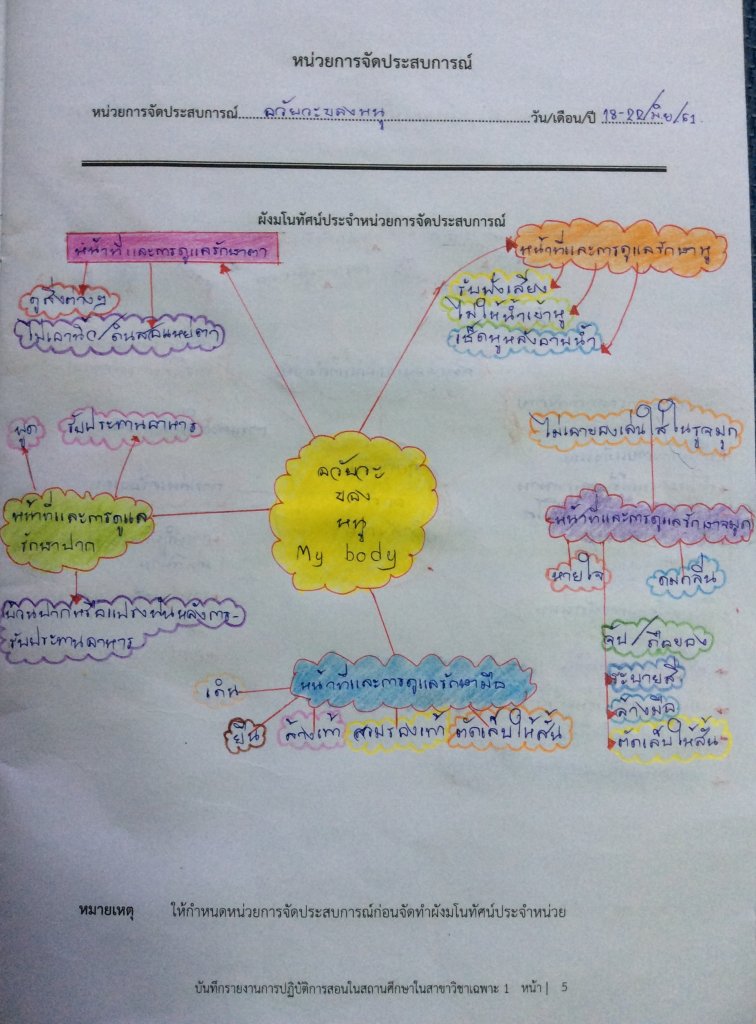 หน่วยการจัดประสบการณ์
หน่วยการจัดประสบการณ์ อวัยวะของหนู วัน/เดือน/ปี 18-22/มิย/61.
ผังมโนทัศน์ประจำหน่วยการจัดประสบการณ์
หน้าที่และการดูแลรักษาตา
ดูสิ่งต่างๆ
ไม่เอานิ้ว/ดินสอแหย่ตา
หน้าที่และการดูแลรักษาหู
รับฟังเสียง
ไม่ให้น้ำเข้าหู
เช็ดหูหลังอาบน้ำ
พูด
รับประทานอาหาร
หน้าที่และการดูแล
รักษาปาก
บ้วนปากหรือแปรงฟันหลังการ-
รับประทานอาหาร
อวัยวะ
ของ
หนู
My body
ไม่เอาของเล่นใส่ในรูจมูก
หน้าที่และการดูแลรักษาจมูก
หายใจ
ดมกลิ่น
จับ/ถือของ
ระบายสี
ล้างมือ
ตัดเล็บให้สั้น
หน้าที่และการดูแลรักษามือ
เดิน
ยืน
ล้างเท้า
สวมรองเท้า
ตัดเล็บให้สั้น
หมายเหตุ ให้กำหนดหน่วยการจัดประสบการณ์ก่อนจัดทำผังมโนทัศน์ประจำหน่วย
บันทึกรายงานการปฏิบัติการสอนในสถานศึกษาในสาขาวิชาเฉพาะ 1 หน้า | 5